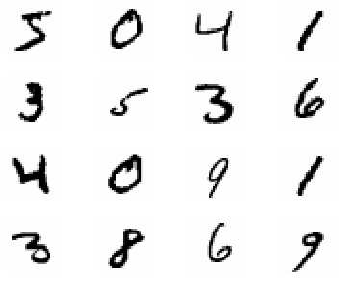 5 0 4 1
3 5 3 6
4 0 9 1
3 8 6 9